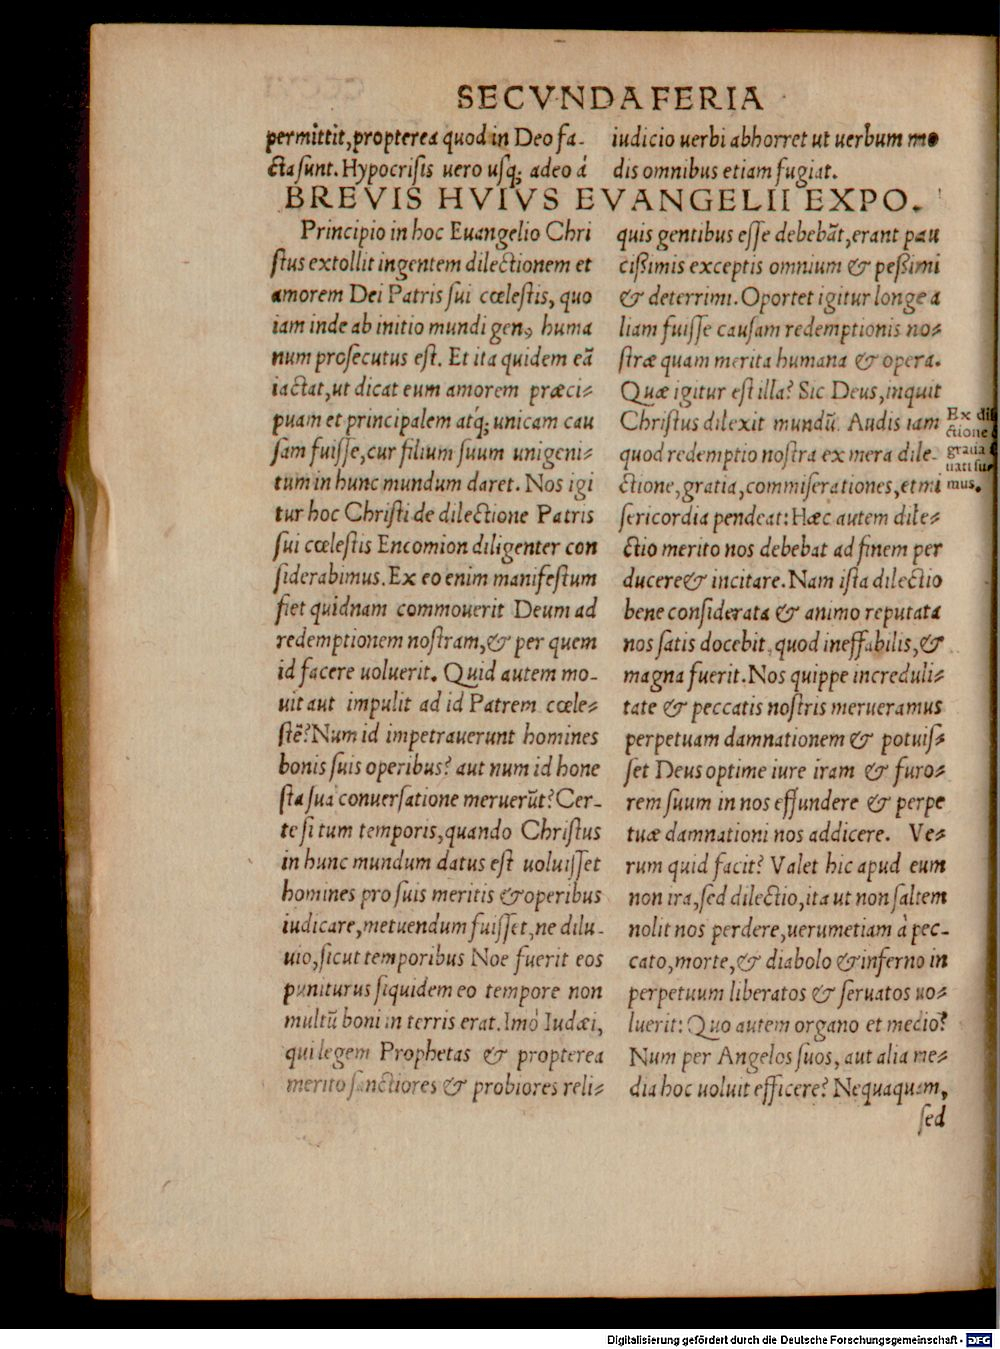 SECVNDA FERIA
permittit, propterea quod in Deo fa-
cta sunt. Hypocrisis uero usq; adeo á
iudicio uerbi abhorret ut uerbum mo
dis omnibus etiam fugiat.
BREVIS HVIVS EVANGELII EXPO.
Principio in hoc Euangelio Chri
stus extollit ingentem dilectionem et
amorem Dei Patris sui cœlestis, quo
iam inde ab initio mundi genꝰ huma
num prosecutus est. Et ita quidem eã
iactat, ut dicat eum amorem præci-
puam et principalem atq́; unicam cau
sam fuisse, cur filium suum unigeni-
tum in hunc mundum daret. Nos igi
tur hoc Christi de dilectione Patris
sui cœlestis Encomion diligenter con
siderabimus. Ex eo enim manifestum
fiet quidnam commouerit Deum ad
redemptionem nostram, & per quem
id facere uoluerit. Quid autem mo-
uit aut impulit ad id Patrem cœle-
stẽ? Num id impetrauerunt homines
bonis suis operibus? aut num id hone
sta sua conuersatione meruerũt? Cer-
te si tum temporis, quando Christus
in hunc mundum datus est uoluisset
homines pro suis meritis & operibus
iudicare, metuendum fuisset, ne dilu-
uio, sicut temporibus Noe fuerit eos
puniturus siquidem eo tempore non
multũ boni in terris erat. Imò Iudæi,
qui legem Prophetas & propterea
merito sanctiores & probiores reli-
quis gentibus esse debebãt, erant pau
cißimis exceptis omnium & peßimi
& deterrimi. Oportet igitur longe a
liam fuisse causam redemptionis no-
stræ quam merita humana & opera.
Quæ igitur est illa? Sic Deus, inquit
Christus dilexit mundũ. Audis iam
quod redemptio nostra ex mera dile-
ctione, gratia, commiserationes, et mi
sericordia pendeat: Hæc autem dile-
ctio merito nos debebat ad finem per
ducere & incitare. Nam ista dilectio
bene considerata & animo reputata
nos satis docebit, quod ineffabilis, &
magna fuerit. Nos quippe increduli-
tate & peccatis nostris merueramus
perpetuam damnationem & potuis-
set Deus optime iure iram & furo-
rem suum in nos effundere & perpe
tuæ damnationi nos addicere. Ve-
rum quid facit? Valet hic apud eum
non ira, sed dilectio, ita ut non saltem
nolit nos perdere, uerumetiam à pec-
cato, morte, & diabolo & inferno in
perpetuum liberatos & seruatos uo-
luerit: Quo autem organo et medio?
Num per Angelos suos, aut alia me-
dia hoc uoluit efficere? Nequaquam,
sed
Ex
ctione
gratia
uati
mus.
Digitalisierung gefördert durch die Deutsche Forschungsgemeinschaft - DFG